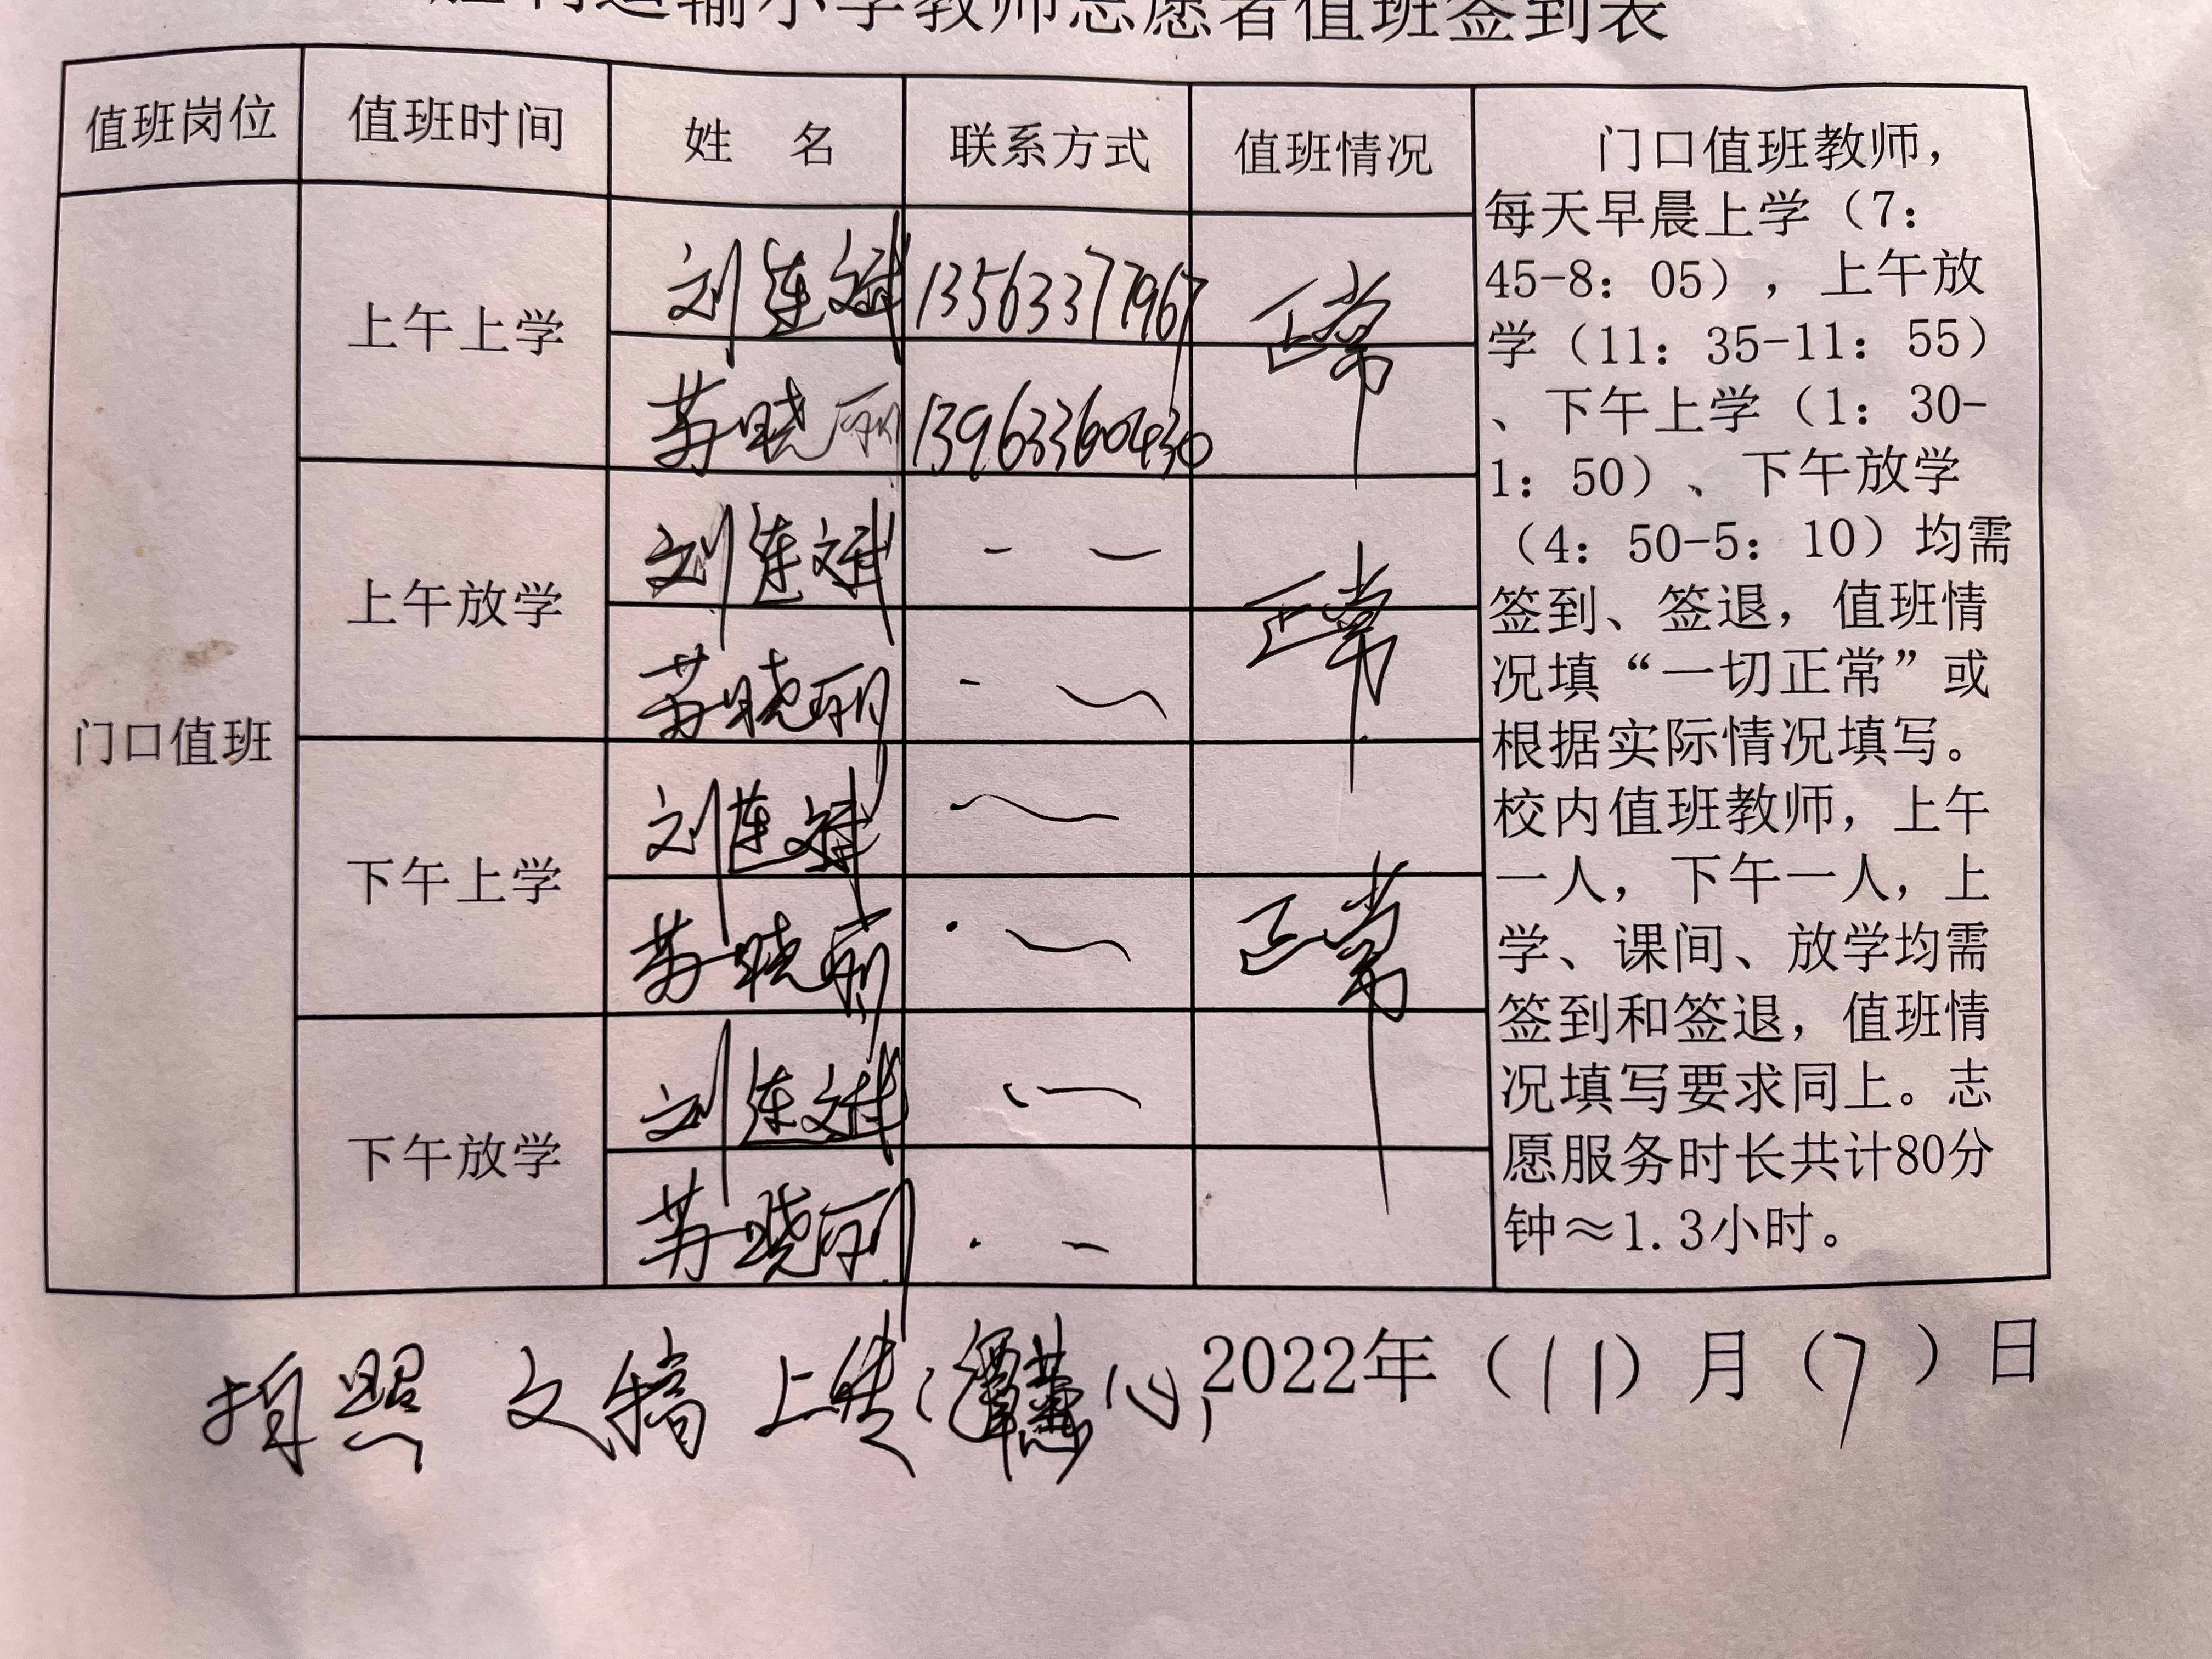 运输小学教师志愿者值班签到表
值班岗位 值班时间 姓 名 联系方式 值班情况
门口值班教师，
每天早晨上学（7：
45-8：05），上午放
学（11：35-11：55）
、下午上学（1：30-
1：50）、下午放学
（4：50-5：10）均需
签到、签退，值班情
况填“一切正常”或
根据实际情况填写。
校内值班教师，上午
一人，下午一人，上
学、课间、放学均需
签到和签退，值班情
况填写要求同上。志
愿服务时长共计80分
钟≈1.3小时。
门口值班
上午上学
刘连斌 13563377967 正常
苏晓丽 13963360430
上午放学
刘连斌 正常
苏晓丽
下午上学
刘连斌
苏晓丽 正常
下午放学
刘连斌
苏晓丽
拍照 文稿 上传
2022年（11）月（7）日